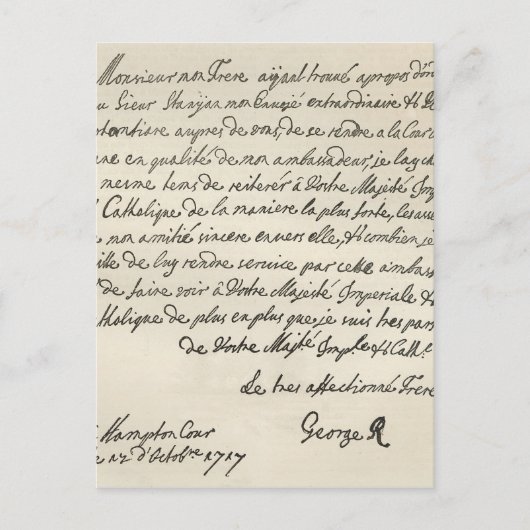 Monsieur mon Frere aijant trouvé apropos d'or
u Sieur Stanjan mon Envojé extraordinaire &
tentiare aupres de vous, de se rendre a la Cour
ne en qualité de mon ambassadeur, je luy
mesme tens de reiterér â Vostre Majesté Imp
Catholique de la maniere la plus forte, les asse
mon amitié sincere envers elle, & combien je
ille de luy rendre service par cette ambass
de faire voir â Vostre Majesté Imperiale &
tholique de plus en plus que je suis tres par
de Vostre Maj.té Imp.le & Cath.e
Le tres affectionné Frere
Hampton Cour
e 12 d'Octobre 1717
George R